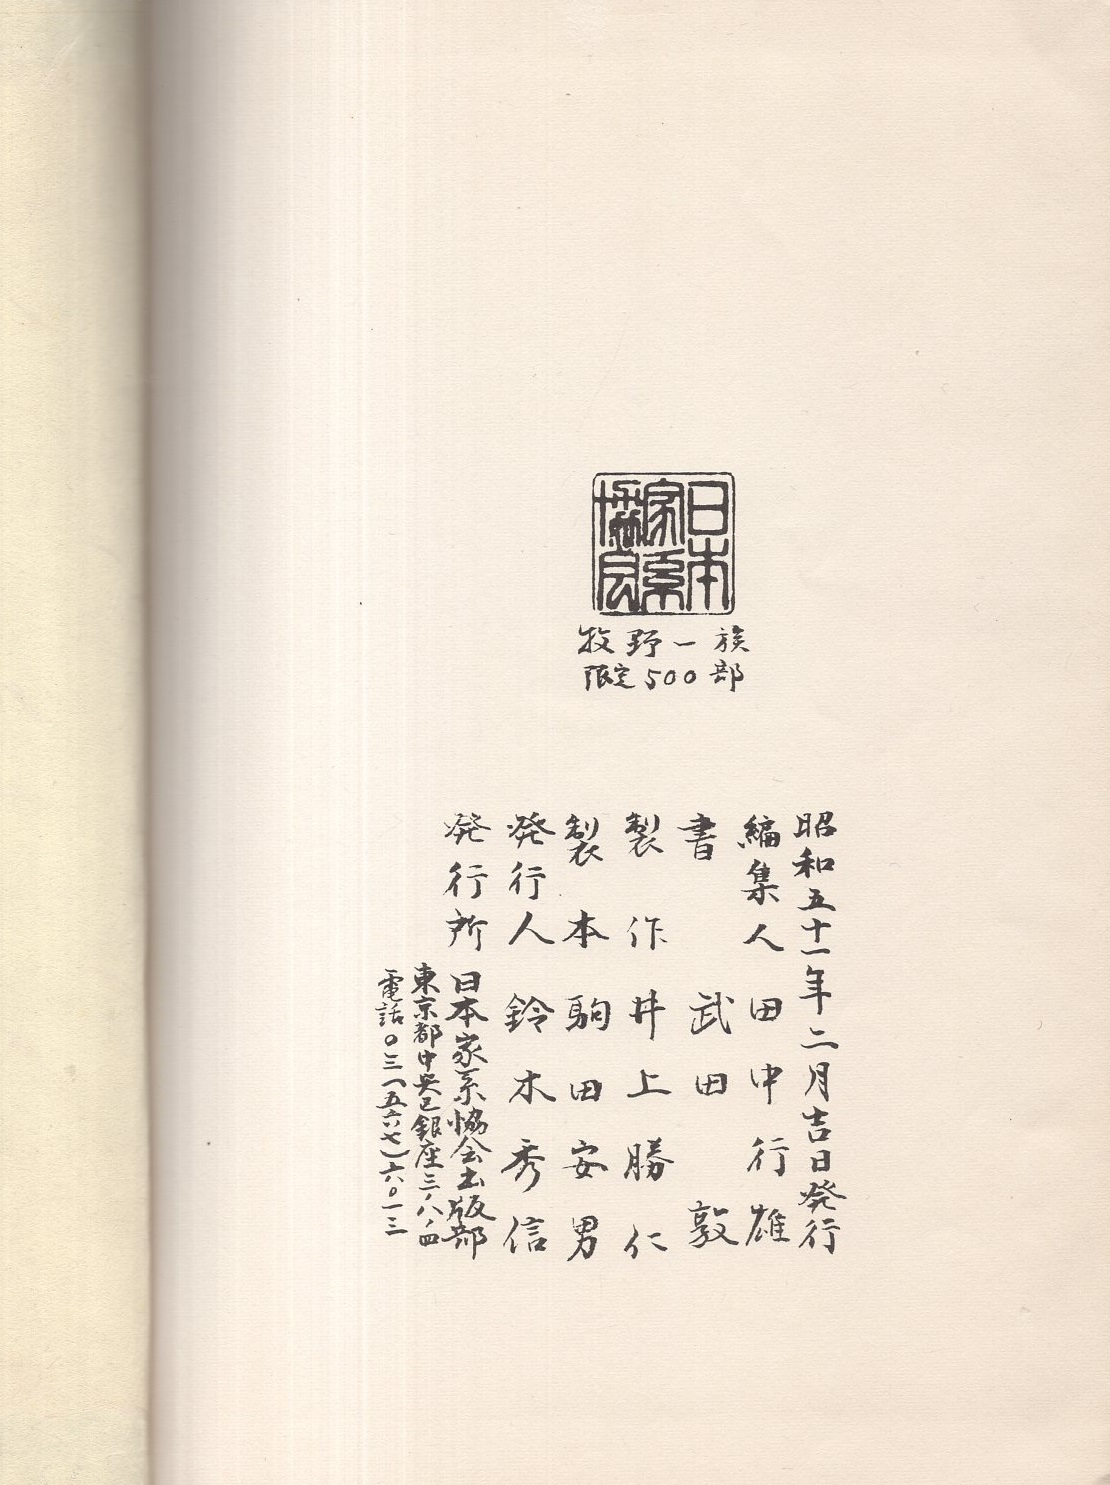 日本
家系
協会
牧野一族
限定500部
昭和五十一年二月吉日発行
編集人 田中行雄
書 武田敦
製作 井上勝仁
製本 駒田安男
発行人 鈴木秀信
発行所 日本家系協会出版部
東京都中央区銀座三ノ八ノ四
電話〇三(五六七)六〇一三